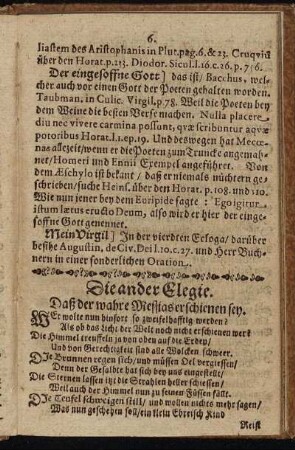 6.
liastem des Aristophanis in Plut. pag. 6. & 23. Cruqvid
über den Horat. p. 213. Diodor. Sicul. l. 16. c. 26. p. 756.
Der eingesoffne Gott] das ist/ Bacchus, wel-
cher auch vor einen Gott der Poeten gehalten worden.
Taubman, in Culic. Virgil. p. 78. Weil die Poeten bey
dem Weine die besten Verse machen. Nulla placere
diu nec vivere carmina possunt, qvæ scribuntur aqvæ
potoribus Horat. l. 1. ep. 19. Und deswegen hat Mecœ-
nas allezeit/ wenn er die Poeten zum Truncke angemah-
net/ Homeri und Ennii Exempel angeführet. Von
dem Æschylo ist bekant/ daß er niemals nüchtern ge-
schrieben/ suche Heins. über den Horat. p. 108. und 110.
Wie nun jener bey dem Euripide sagte: Ego igitur
istum lætus eructo Deum, also wird er hier der einge-
soffne Gott genennet.
Mein Virgil] In der vierdten Ecloga/ darüber
besihe Augustin. de Civ. Dei l. 10. c. 27. und Herr Buch-
nern in einer sonderlichen Oration.
Die ander Elegie.
Daß der wahre Messias erschienen sey.
WEr wolte nun hinfort so zweifelhafftig werden?
Als ob das Licht der Welt noch nicht erschienen wer?
Die Himmel treuffeln ja von oben auf die Erden/
Und von Gerechtigkeit sind alle Wolcken schwer.
DIe Brunnen regen sich/ und müssen Oel vergiessen/
Denn der Gesalbte hat sich bey uns eingestellt/
Die Sternen lassen itzt die Strahlen heller schiessen/
Weil auch der Himmel nun zu seinen Füssen fällt.
DIe Teufel schweigen still/ und wollen nichts mehr sagen/
Was nun geschehen soll/ ein klein Ebreisch Kind
Reist